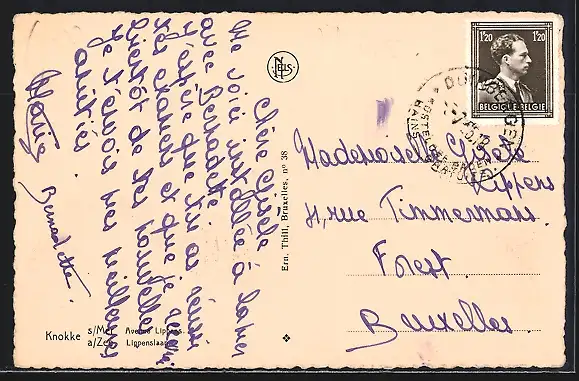 Chère Gisèle
Me voici installée à la mer
avec Bernadette.
J'espère que tu as réussi
tes examens et que je
bientôt de tes nouvelles
Je t'envoie mes meilleures
amitiés.
Bernadette.
NELS
Ern. Thill, Bruxelles, n° 38
Knokke s/Mer Avenue Lippens.
a/Zee Lippenslaan
1'20 1'20
BELGIQUE-BELGIE
Mademoiselle Gisèle
Lippens
rue Timmermans.
Forest.
Bruxelles.